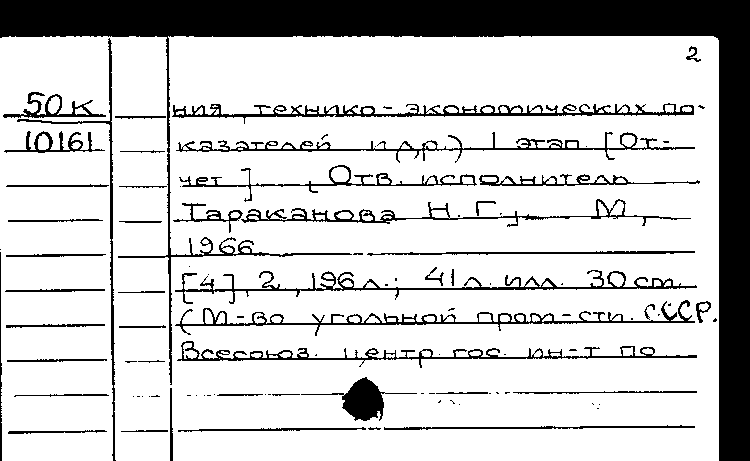 2
50К
10161
ния, технико-экономических по-
казателей и др.) 1 этап [От-
чет]. [Отв. исполнитель
Тараканова Н.Г.]. М,
1966
[4], 2, 196 л.; 41 л. илл. 30 cm.
(М-во угольной пром-сти. СССР.
Всесоюз. центр. гос. ин-т по